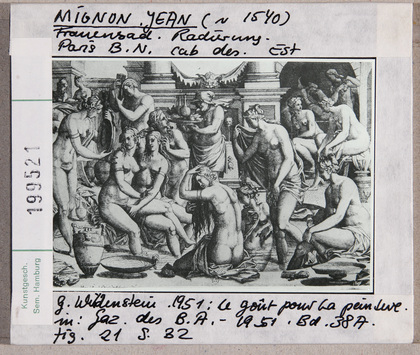 MIGNON, JEAN (~ 1540)
Frauenbad. Radierung.
Paris B.N. cab des. Est
199521
Kunstgesch.
Sem. Hamburg
G. Wildenstein. 1951: Le goût pour la peinture.
in: Gaz. des B.A. - 1951. Bd. 38A.
fig. 21 S. B2